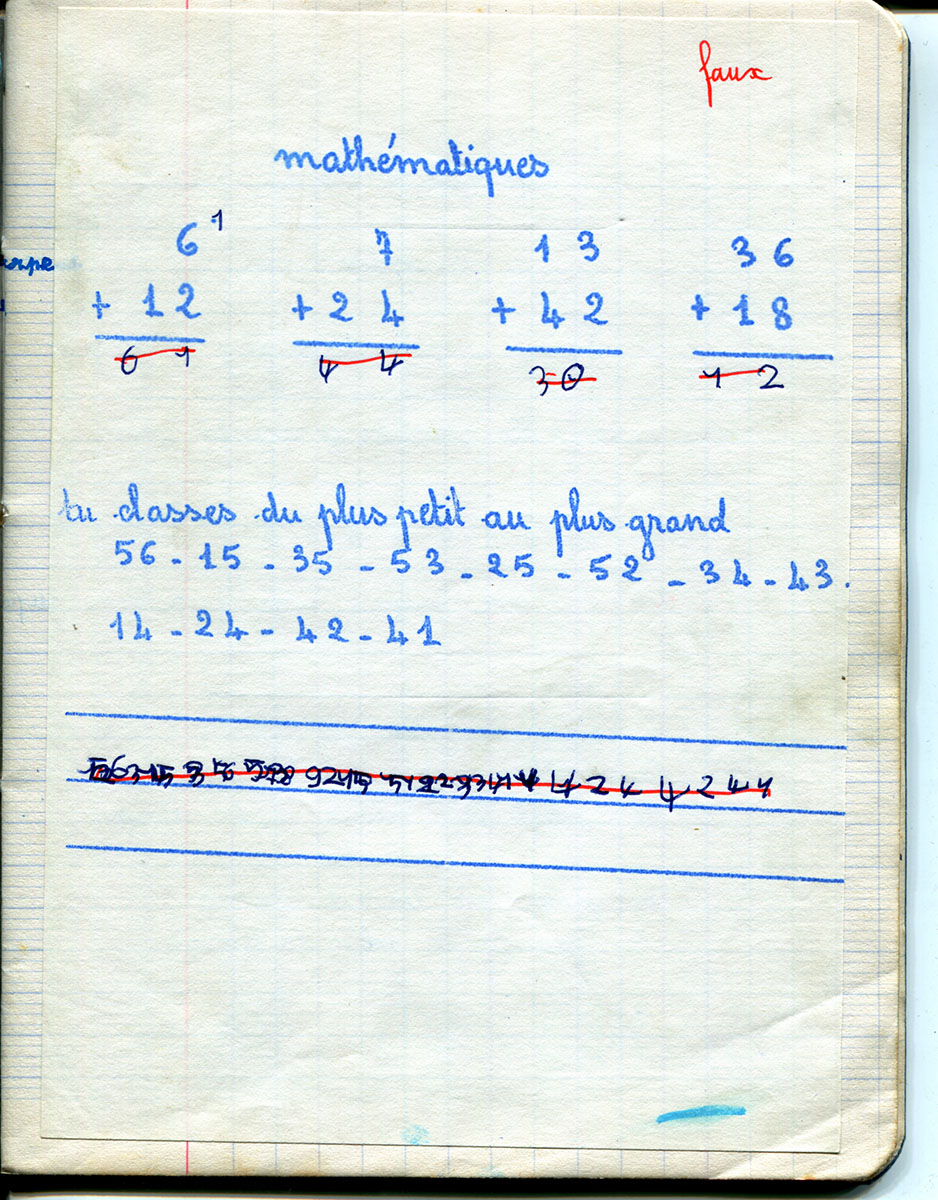 faux
mathématiques
6 1 7 13 36
+ 12 + 24 + 42 + 18
61 44 30 12
tu classes du plus petit au plus grand
56 - 15 - 35 - 53 - 25 - 52 - 34 - 43.
14 - 24 - 42 - 41
4 2 4 4 2 4 1